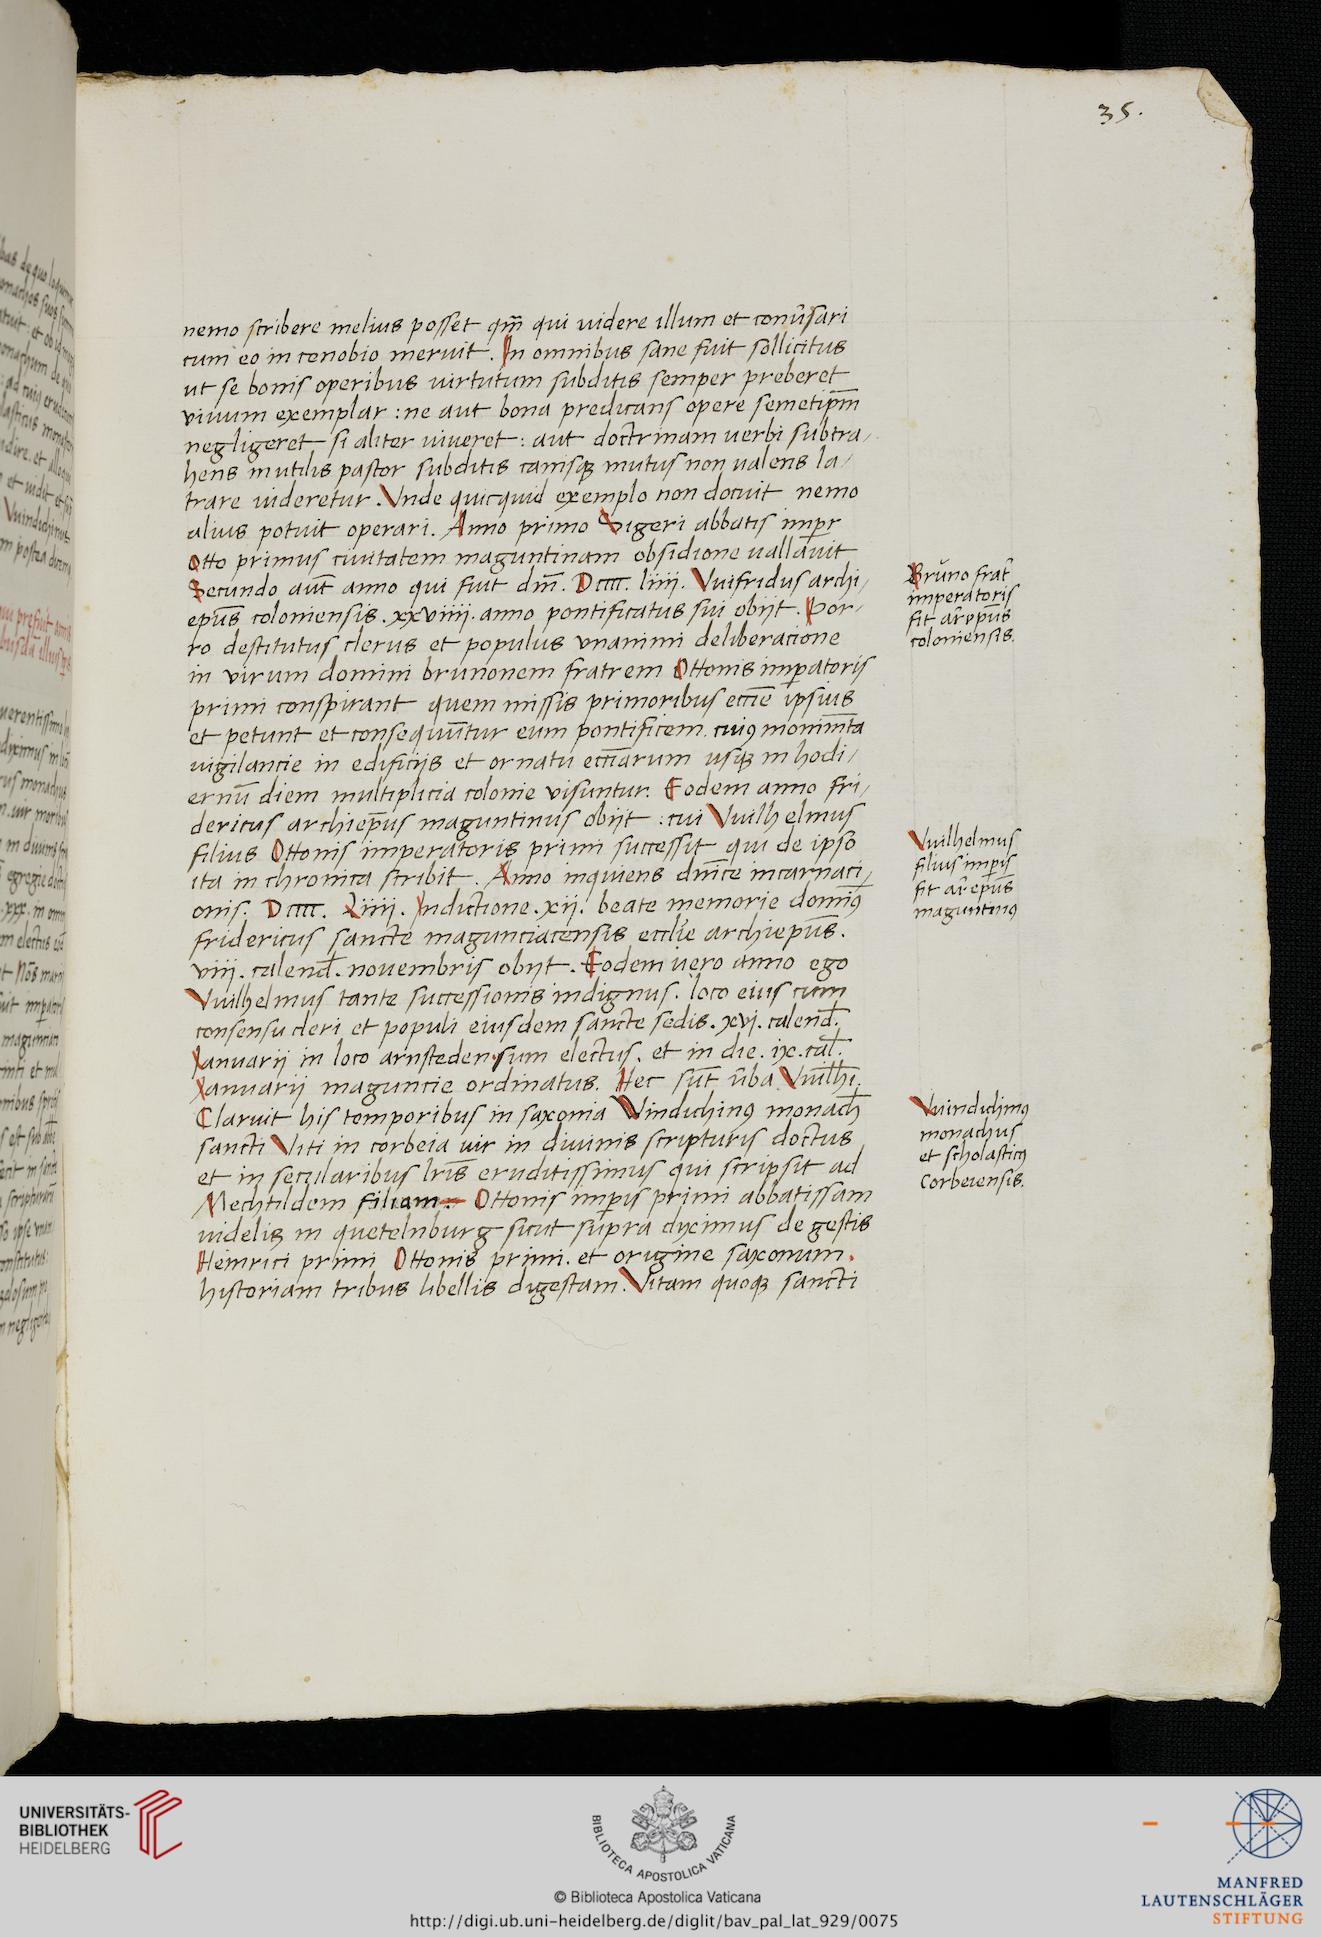 35.
nemo scribere melius posset qm̄ qui uidere illum et conūsari
cum eo in cenobio meruit. In omnibus sane fuit sollicitus
ut se bonis operibus uirtutum subditis semper preberet
viuum exemplar : ne aut bona predicans opere semetip̄m
negligeret si aliter uiueret : aut doctrinam uerbi subtra/
hens inutilis pastor subditis canisqꝫ mutus non ualens la/
trare uideretur. Vnde quicquid exemplo non docuit nemo
alius potuit operari. Anno primo Sigeri abbatis imp̄r
Otto primus ciuitatem maguntinam obsidione uallauit
Secundo aut̄ anno qui fuit dm̄. Dcccc. liiij. Vuifridus archi/
ep̄us coloniensis. xxviiij. anno pontificatus sui obijt. Por/
ro destitutus clerus et populus vnanimi deliberacione
in virum domini brunonem fratrem Ottonis imp̄atoris
primi conspirant quem missis primoribus eccīe ipsius
et petunt et consequūtur eum pontificem. cuiꝯ monimēta
uigilancie in edificijs et ornatu eccīarum usqꝫ in hodi/
ernū diem multiplicia colonie visuntur. Eodem anno fri/
dericus archiep̄us maguntinus obijt : cui Vuilhelmus
filius Ottonis imperatoris primi successit qui de ipso
ita in chronica scribit. Anno inquiens dn̄ice incarnaci/
onis. Dcccc. Liiij. Indictione. xij. beate memorie domīꝯ
fridericus sancte magunciacensis eccl̄ie archiep̄us.
viij. calend̄. nouembris obijt. Eodem uero anno ego
Vuilhelmus tante successionis indignus. loco eius cum
consensu cleri et populi eiusdem sancte sedis. xvj. calend̄.
Ianuarij in loco arnsteden. sum electus. et in die. ix. cal̄.
Ianuarij maguncie ordinatus. Hec sūt ūba Vuilh̄i.
Claruit his temporibus in saxonia Vindichinꝯ monach̄
sancti Viti in corbeia uir in diuinis scripturis doctus
et in secularibus lr̄is eruditissimus qui scripsit ad
Mechtildem filiam Ottonis imp̄is primi abbatissam
uidelic̄ in quetelnburg sicut supra diximus de gestis
Heinrici primi Ottonis primi. et origine saxonum.
historiam tribus libellis digestam. Vitam quoqꝫ sancti
Bruno frat̄
imperatoris
fit ar̄ep̄us
coloniensis.
Vuilhelmus
filius imp̄is
fit ar̄ep̄us
maguntinꝯ
Vuindichinꝯ
monachus
et scholasticꝯ
Corbeiensis.
UNIVERSITÄTS-
BIBLIOTHEK
HEIDELBERG
BIBLIOTECA APOSTOLICA VATICANA
© Biblioteca Apostolica Vaticana
http://digi.ub.uni-heidelberg.de/diglit/bav_pal_lat_929/0075
MANFRED
LAUTENSCHLÄGER
STIFTUNG